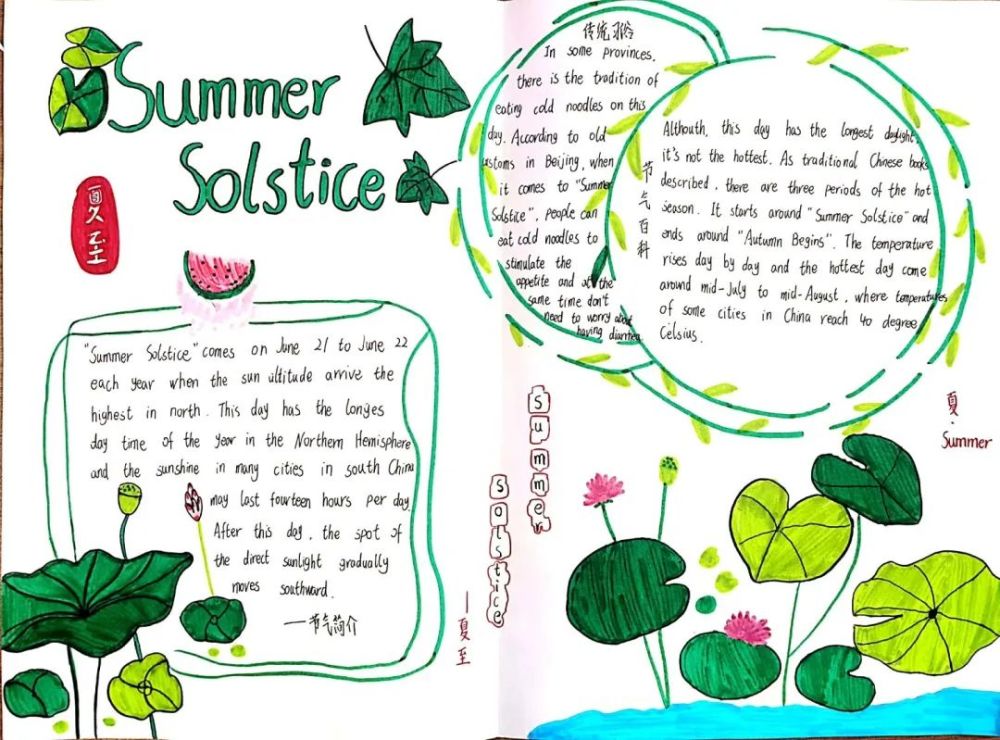 Summer
Solstice
夏至
"Summer Solstice" comes on June 21 to June 22
each year when the sun ultitude arrive the
highest in north. This day has the longes
day time of the year in the Northern Hemisphere
and the sunshine in many cities in south China
may last fourteen hours per day.
After this day, the spot of
the direct sunlight gradually
moves southward.
—节气简介
传统习俗
In some provinces,
there is the tradition of
eating cold noodles on this
day. According to old
ustoms in Beijing, when
it comes to "Summer
Solstice", people can
eat cold noodles to
stimulate the
appetite and at the
same time don't
need to worry about
having diarrhea
节气百科
Althouth, this day has the longest daylight,
it's not the hottest. As traditional Chinese books
described, there are three periods of the hot
season. It starts around "Summer Solstice" and
ends around "Autumn Begins". The temperature
rises day by day and the hottest day come
around mid-July to mid-August, where temperatures
of some cities in China reach 40 degree
Celsius.
Summer
Solstice
—夏至
夏·
Summer